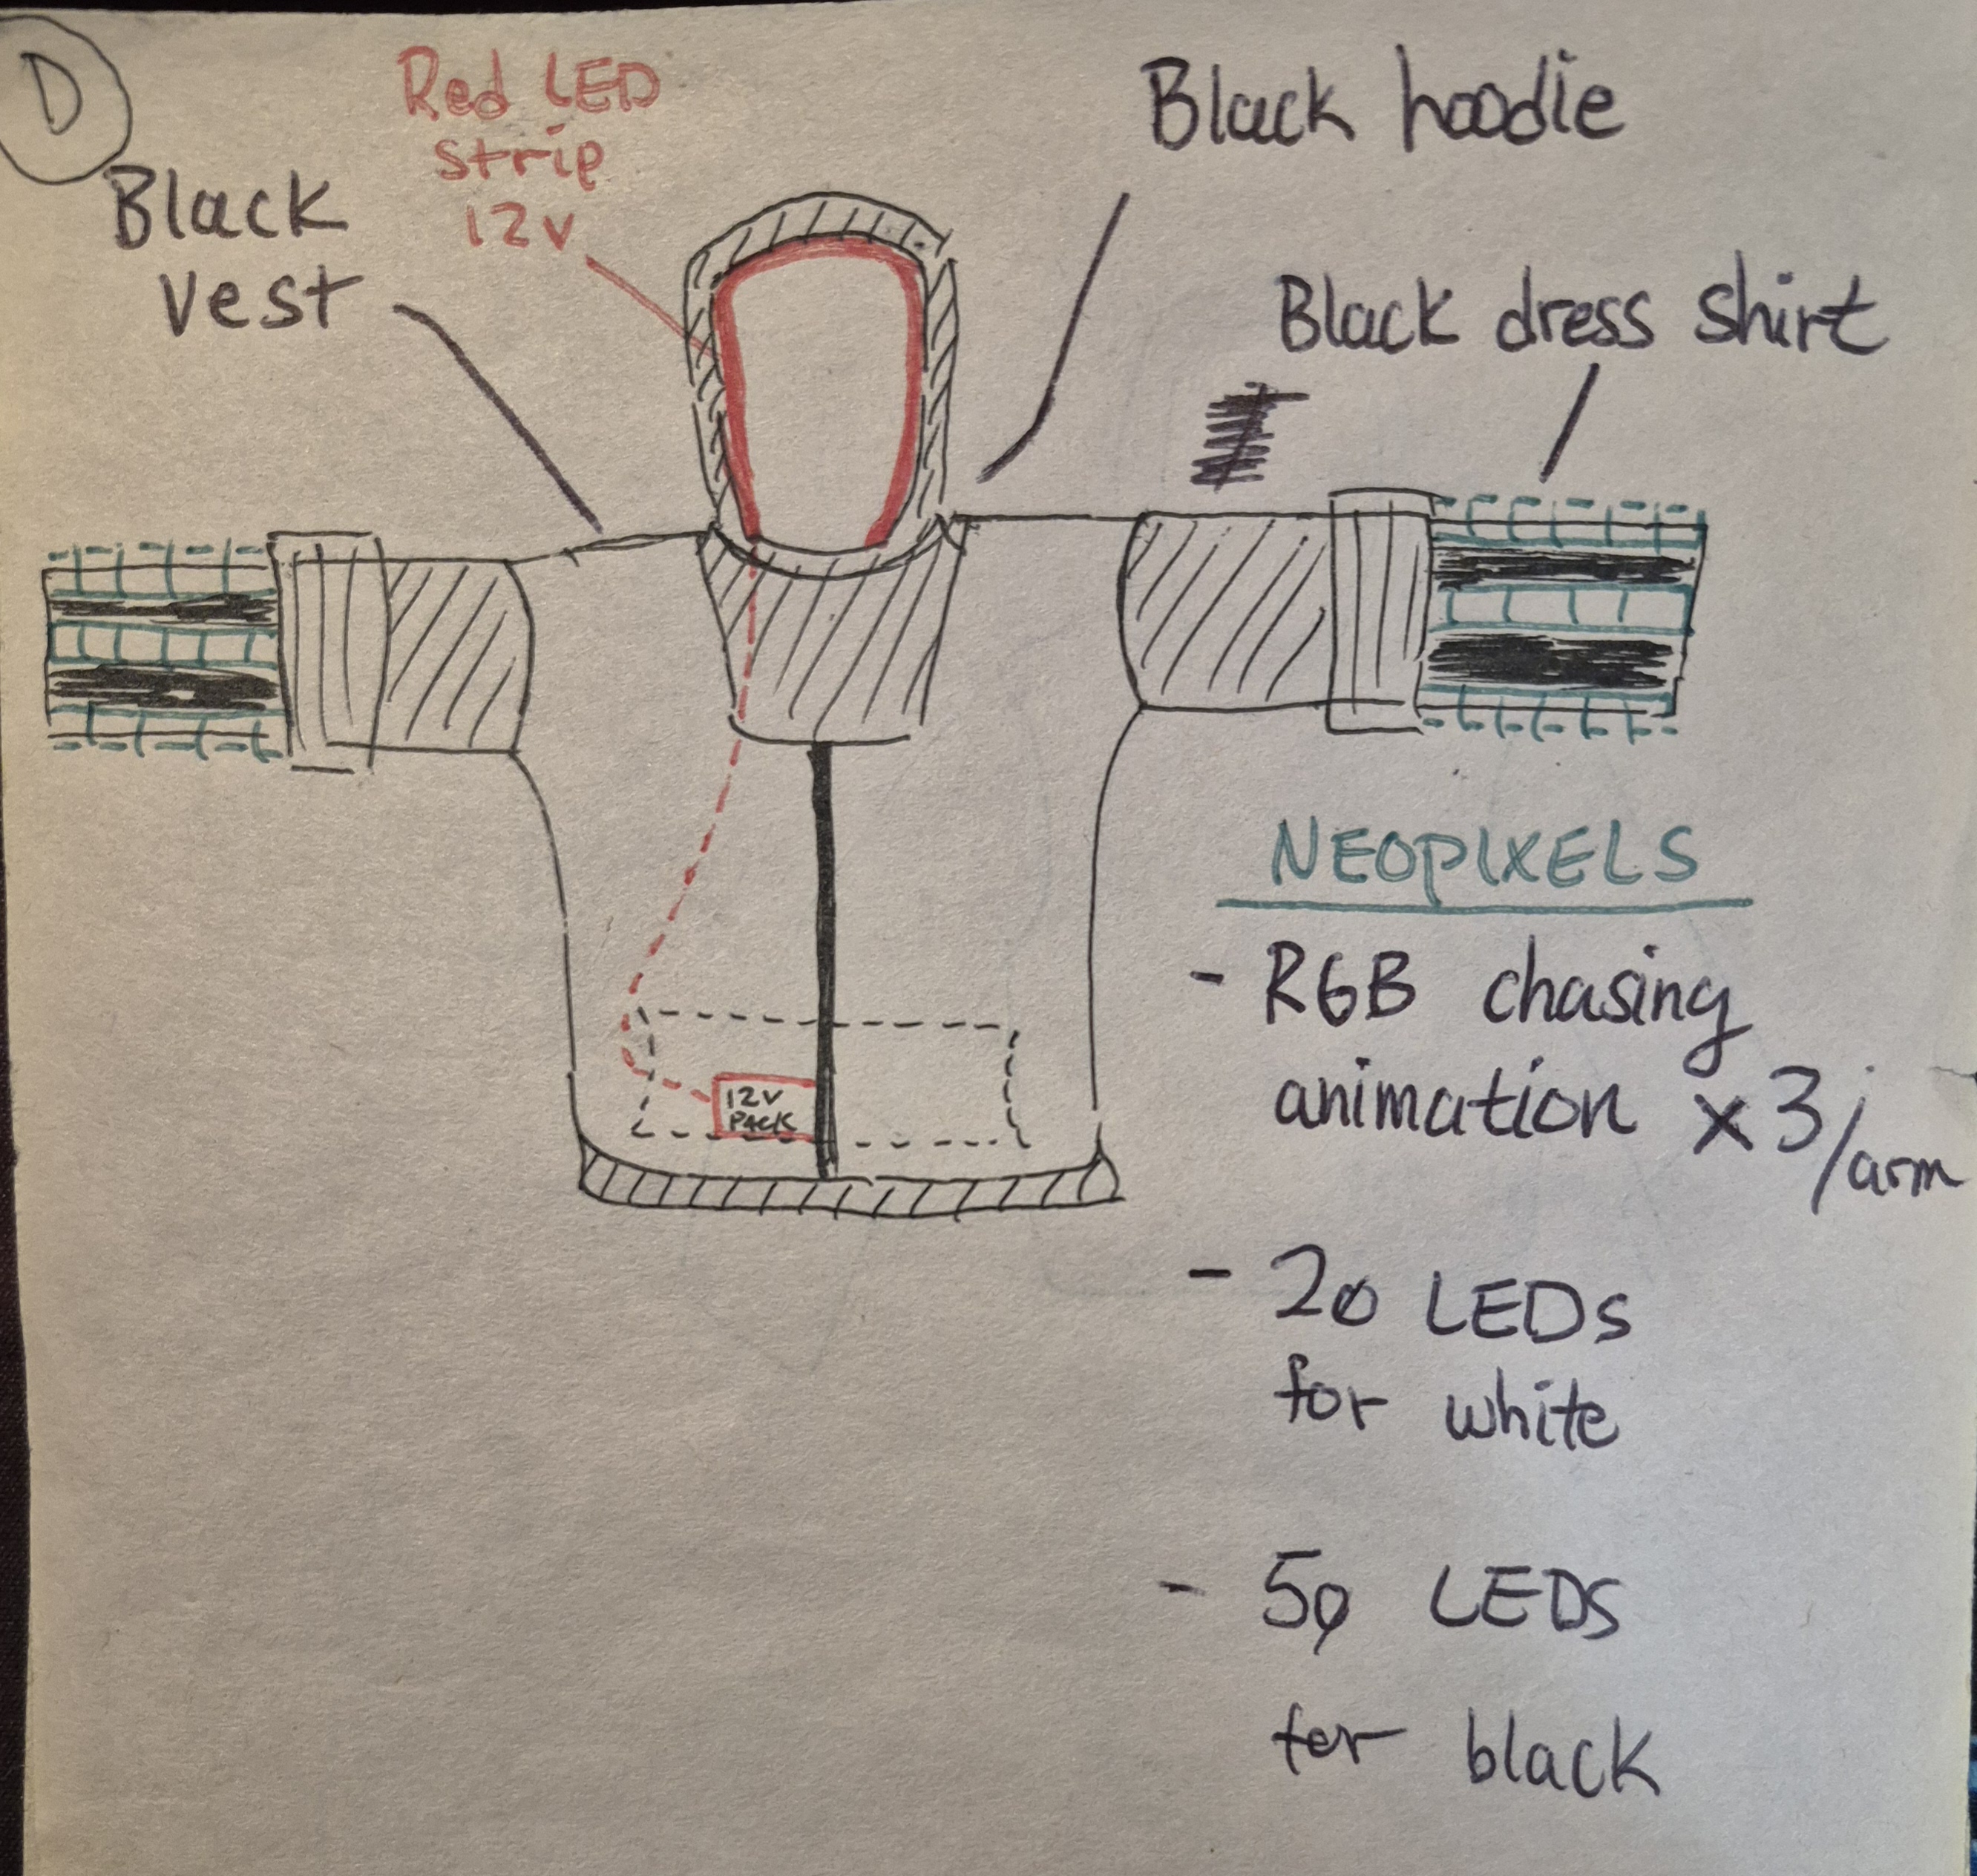 D
Red LED
strip
12v
Black
vest
Black hoodie
Black dress shirt
12V
PACK
NEOPIXELS
- RGB chasing
animation x3/arm
- 20 LEDs
for white
- 50 LEDS
for black